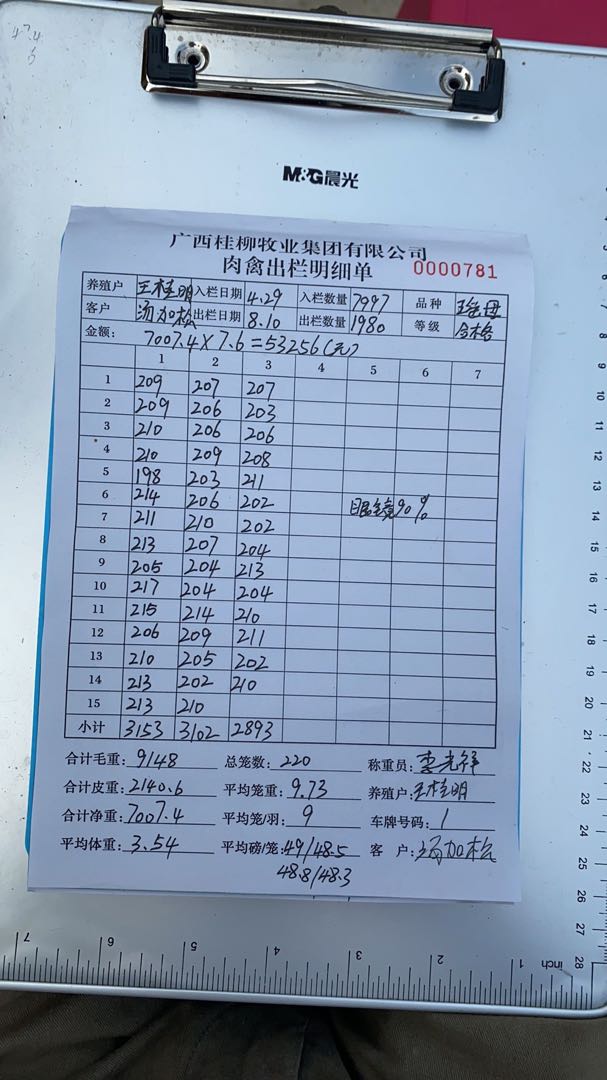 47.4
M&G晨光
广西桂柳牧业集团有限公司
肉禽出栏明细单 0000781
养殖户 王桂明 入栏日期 4.29 入栏数量 7997 品种 瑶母
客户 汤加松 出栏日期 8.10 出栏数量 1980 等级 合格
金额: 7007.4×7.6=53256(元)
1 2 3 4 5 6 7
1 209 207 207
2 209 206 203
3 210 206 206
4 210 209 208
5 198 203 211
6 214 206 202 眼镜90%
7 211 210 202
8 213 207 204
9 205 204 213
10 217 204 204
11 215 214 210
12 206 209 211
13 210 205 202
14 213 202 210
15 213 210
小计 3153 3102 2893
合计毛重: 9148 总笼数: 220 称重员: 李光祥
合计皮重: 2140.6 平均笼重: 9.73 养殖户: 王桂明
合计净重: 7007.4 平均笼/羽: 9 车牌号码: 1
平均体重: 3.54 平均磅/笼: 49/48.5 客户: 汤加松
48.8/48.3
7 6 5 4 3 2 1 inch
7 8 9 10 11 12 13 14 15 16 17 18 19 20 21 22 23 24 25 26 27 28